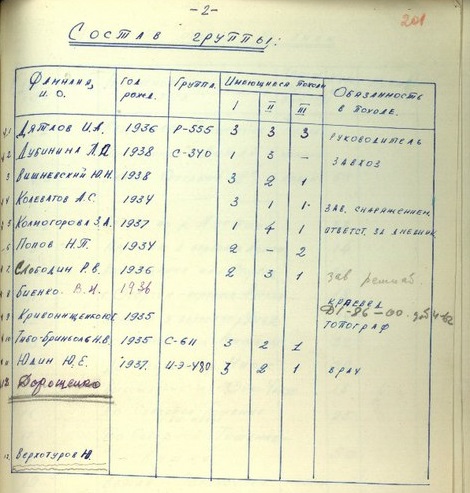 -2-
201
Состав группы:
Фамилия, И. О. Год рожд. Группа. Имеющиеся походы Обязанность в походе.
I II III
1 Дятлов И.А. 1936 Р-555 3 3 3 руководитель
2 Дубинина Л.А 1938 С-340 1 3 – завхоз
3 Вишневский Ю.Н. 1938 3 2 1
4 Колеватов А.С. 1934 3 1 1 зав. снаряжением
5 Колмогорова З.А. 1937 1 4 1 ответст. за дневник
6 Попов Н.П. 1934 2 – 2
7 Слободин Р.В. 1936 2 3 1 зав
8 Биенко В.И. 1936 краевед
9 Кривонищенко 1935 топограф
Тибо-Бриньоль Н.В. 1935 С-611 3 2 1
11 Юдин Ю.Е. 1937 И-Э-480 3 2 1 врач
Дорошенко
12. Верхотуров